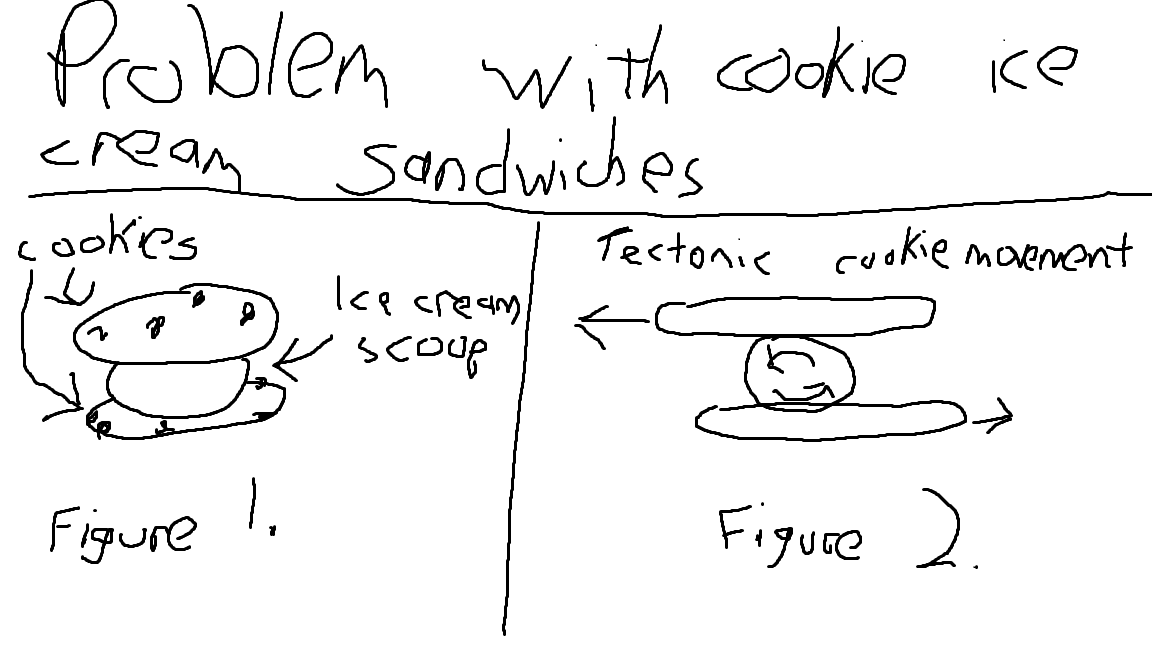 Problem with cookie ice
cream sandwiches
cookies
Ice cream
scoop
Figure 1.
Tectonic cookie movement
Figure 2.